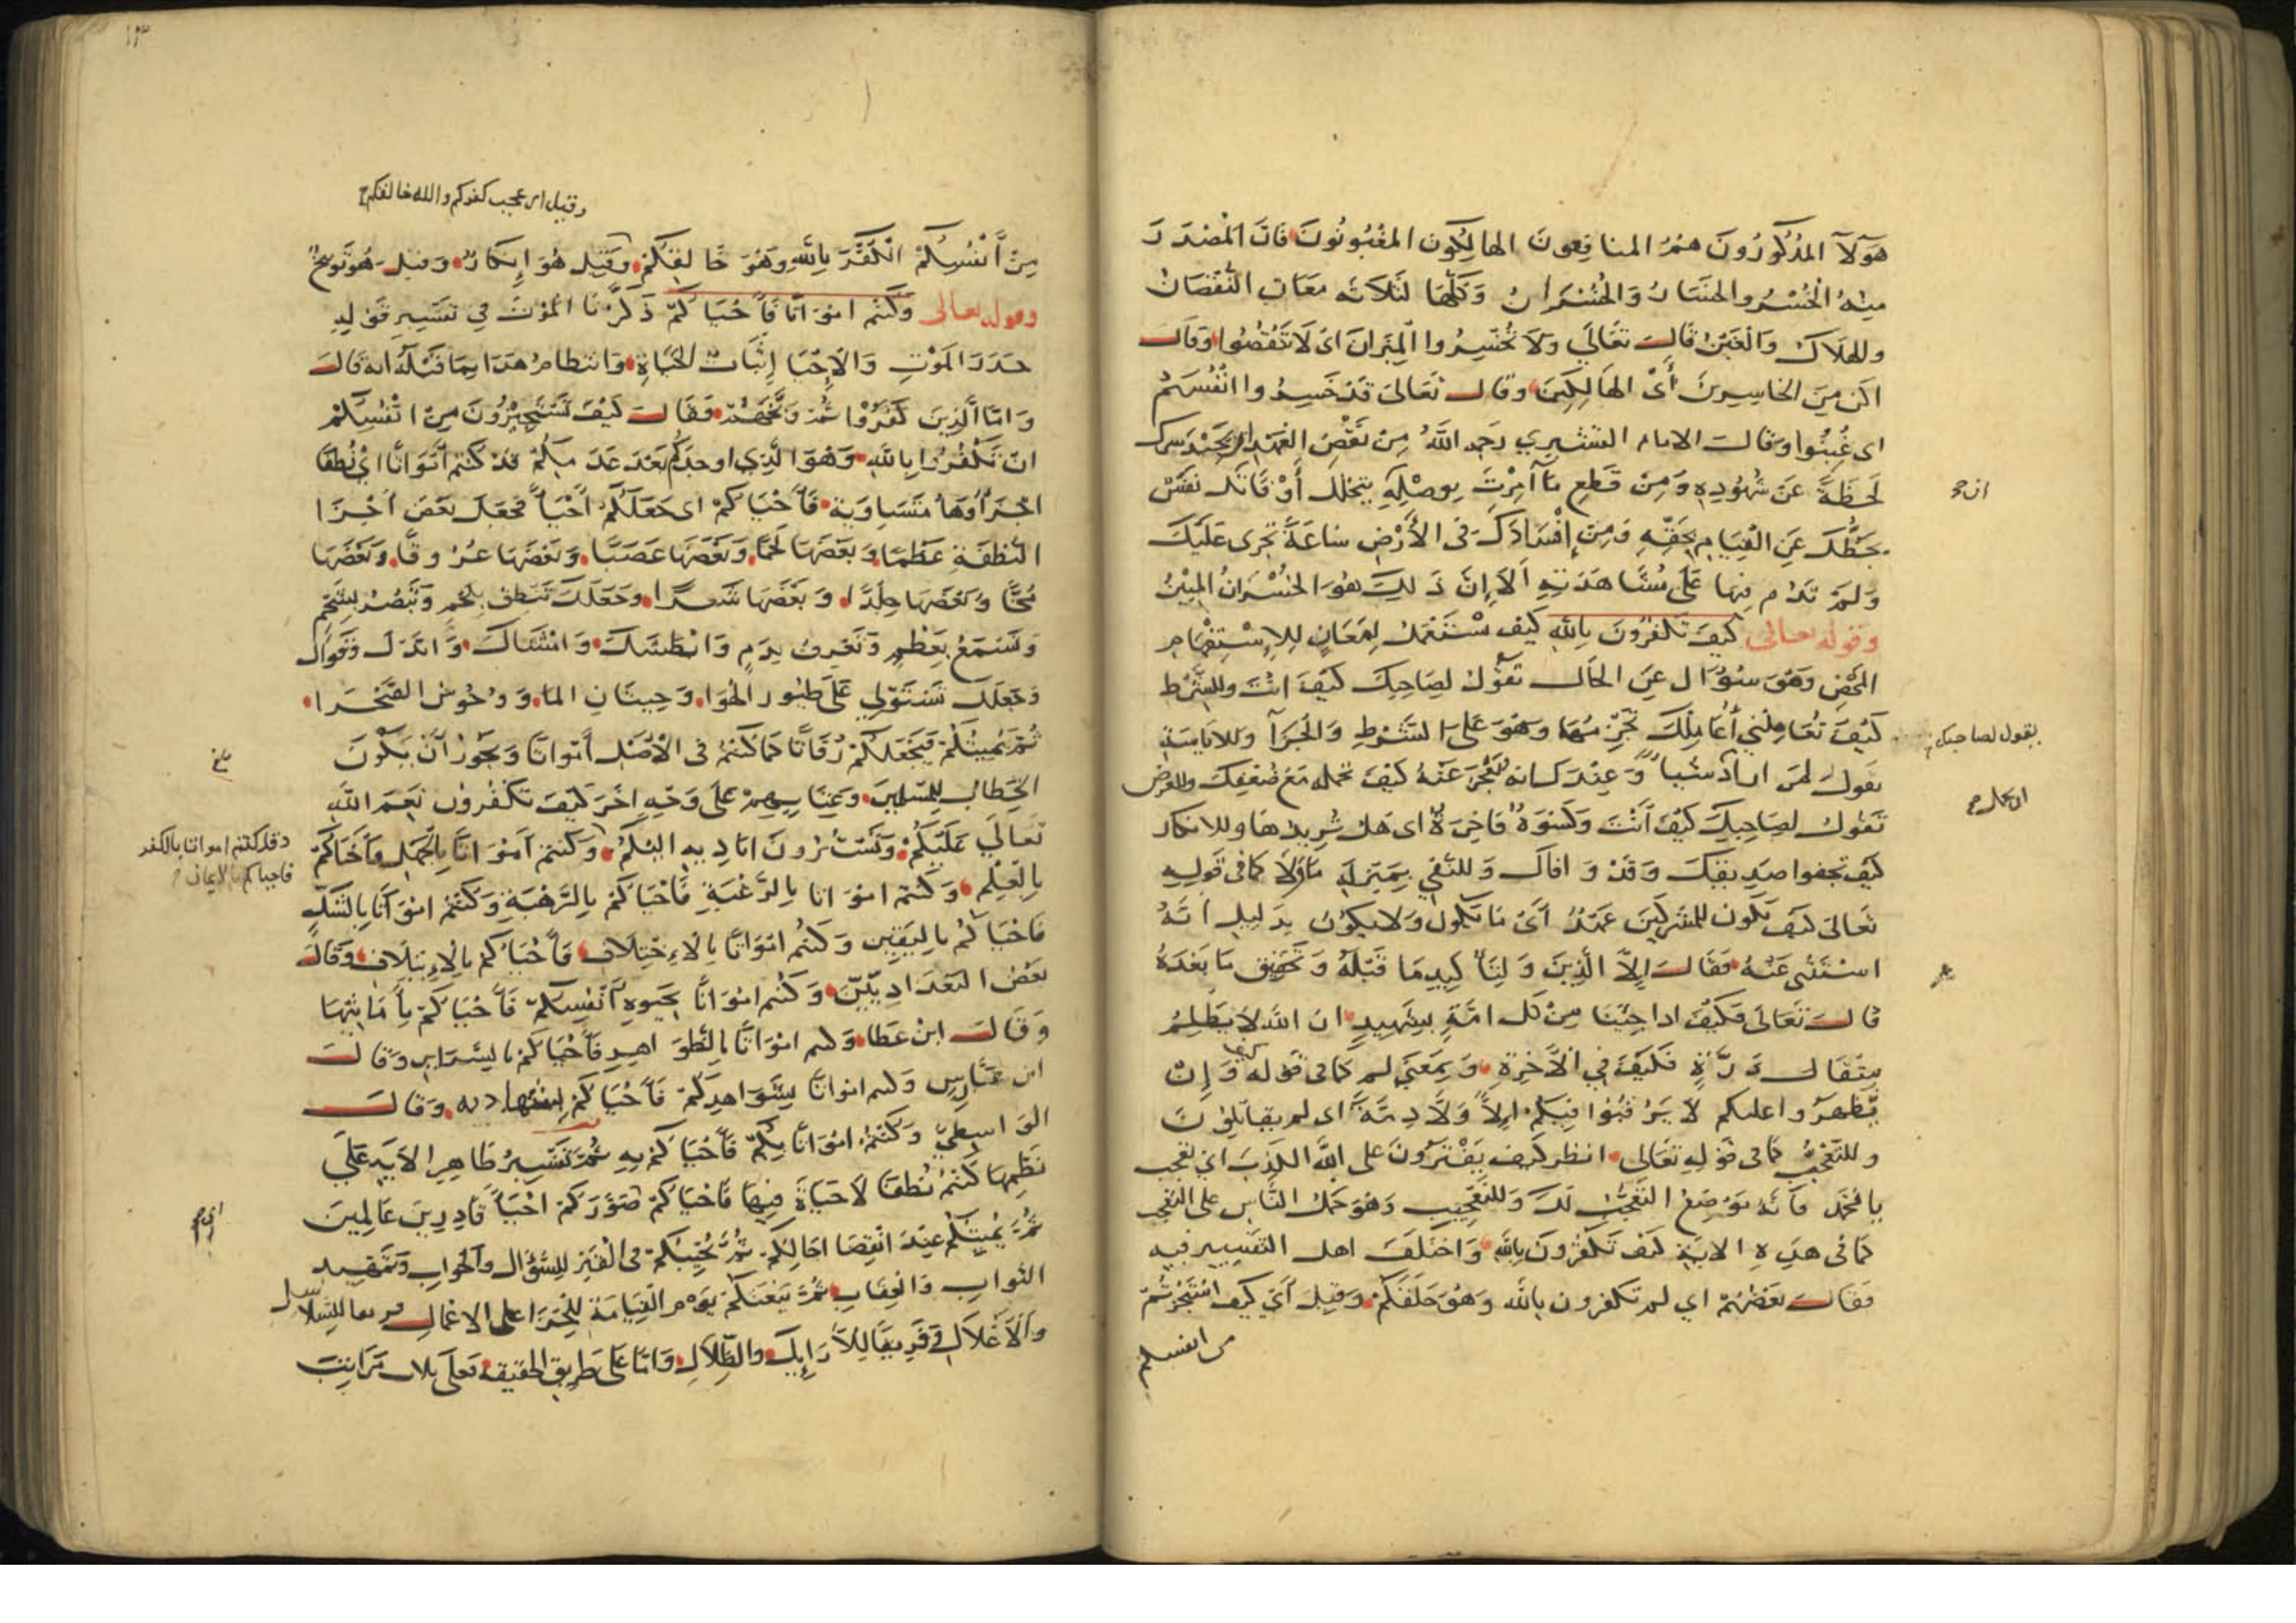 هؤلآ المذكورون هم المنافقون الهالكون المغبونون فان المصدر
منه الخسر والخسار والخسران وكلها لثلاثه معان النقصان
وللهلاك والغبن قال تعالى ولا تخسروا الميزان اى لا تنقصوا وقال
اكن من الخاسرين أى الهالكين وقال تعالى قد خسروا انفسهم
اى غبنوا وقال الامام القشيري رحمه الله من نقض العهد ان
لحظة عن شهوده ومن قطع ما آمرت بوصله أو فاتك نفس
بحظك عن القيام بحقه ومن إفسادك فى الأرض ساعة تجرى عليك
ولم تدم فيها على مشاهدته ألا إن ذلك هو الخسران المبين
وقوله تعالى كيف تكفرون بالله كيف تستعمل لمعان للإستفهام
المحض وهو سؤال عن الحال تقول لصاحبك كيف انت وللشرط
كيف تعاملني أعاملك وهو على الشرط والجزآ
تقول لصاحبك كيف أنت وكسوة فاخرة اى هل تريدها وللانكار
كيف تجفوا صديقك وقد وافاك وللنفي بمنزلة ما ولا كما فى قوله
تعالى كيف يكون للمشركين عهد أى ما يكون ولا يكون بدليل انه
استثنى عنه فقال إلا الذين ما قبله وتحقيق ما بعده
قال تعالى فكيف اذا جئنا من كل امة بشهيد ان الله لا يظلم
مثقال ذرة فكيف في الآخرة وبمعنى لم كما فى قوله كيف وإن
يظهروا عليكم لا يرقبوا فيكم إلاً ولا ذمة اى لم يقاتلون
وللتعجب كما فى قوله تعالى انظر كيف يفترون على الله الكذب اى تعجب
يا محمد فانه موضع التعجب لك وللتعجيب وهو حمل الناس على التعجب
كما فى هذه الاية كيف تكفرون بالله واختلف اهل التفسير فيه
فقال بعضهم اي لم تكفرون بالله وهو خلقكم وقيل أي كيف استجزتم
من انفسكم
يقول لصاحبك
وقيل اى عجب كفركم والله خالقكم
من أنفسكم الكفر بالله وهو خالقكم وقيل هو إنكار وقيل هو توبيخ
وقوله تعالى وكنتم امواتا فأحياكم ذكرنا الموت في تفسير قوله
حذر الموت والإحيا إثبات الحياة وانتظام هذا بما قبله انه قال
واما الذين كفروا ثم وبخهم فقال كيف تستجيزون من انفسكم
ان تكفروا بالله وهو الذي اوجدكم بعد عدمكم قد كنتم أمواتا اى نطفا
اجزاؤها متساوية فأحياكم اى جعلكم أحيآ فجعل بعض أجزا
النطفة عظما وبعضها لحما وبعضها عصبا وبعضها عروقا وبعضها
مخا وبعضها جلدا وبعضها شعرا وجعلك تنطق بلحم وتبصر بشحم
وتسمع بعظم وتعرف بدم
وجعلك تستولي على طيور الهوا وحيتان الما ووحوش الصحرا
ثم يميتكم فيجعلكم رفاتا كما كنتم فى الأصل أمواتا ويجوز أن يكون
الخطاب للمسلمين على وجه آخر كيف تكفرون نعم الله
تعالي عليكم وتستنزرون اياديه اليكم وكنتم أمواتا بالجهل فأحياكم
بالعلم وكنتم امواتا بالرغبة فأحياكم بالرهبة وكنتم امواتا بالشك
فاحياكم باليقين وكنتم امواتا بالاختلاف فأحياكم بالإيتلاف وقال
بعض البغداديين وكنتم امواتا بحيوة أنفسكم فأحياكم بأماتتها
وقال ابن عطا وكنتم امواتا بالظواهر فأحياكم بالسراير وقال
ابن عباس وكنتم امواتا بشواهدكم فأحياكم وقال
الواسطي وكنتم امواتا فأحياكم به ثم تفسير ظاهر الاية على
نظمها كنتم نطفا لا حياة فيها فاحياكم صوركم احيآ قادرين عالمين
ثم يميتكم عند انقضا اجالكم ثم يحييكم فى القبر للسؤال والجواب
الثواب والعقاب ثم يبعثكم يوم القيامة للجزا على الاعمال
والأغلال وفريقا للأرايك والظلال واما على طريق الحقيقة فعلى ثلاث مراتب
وقد كنتم امواتا بالكفر
فاحياكم بالايمان